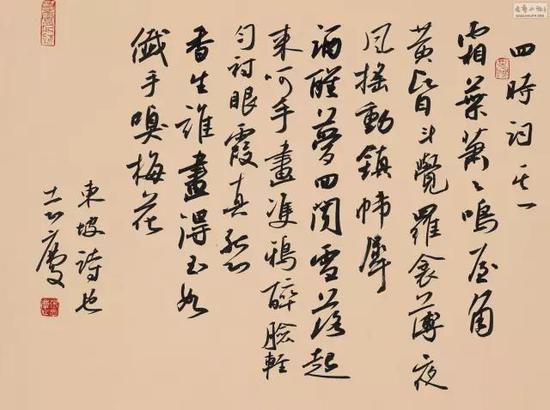 四時詞其一
霜葉蕭々鳴屋角
黃昏斗覺羅衾薄夜
風搖動鎮帷犀
酒醒夢回聞雪落起
來呵手畫雙鴉醉臉輕
勻襯眼霞真態
香生誰畫得玉如
纖手嗅梅花
東坡詩也